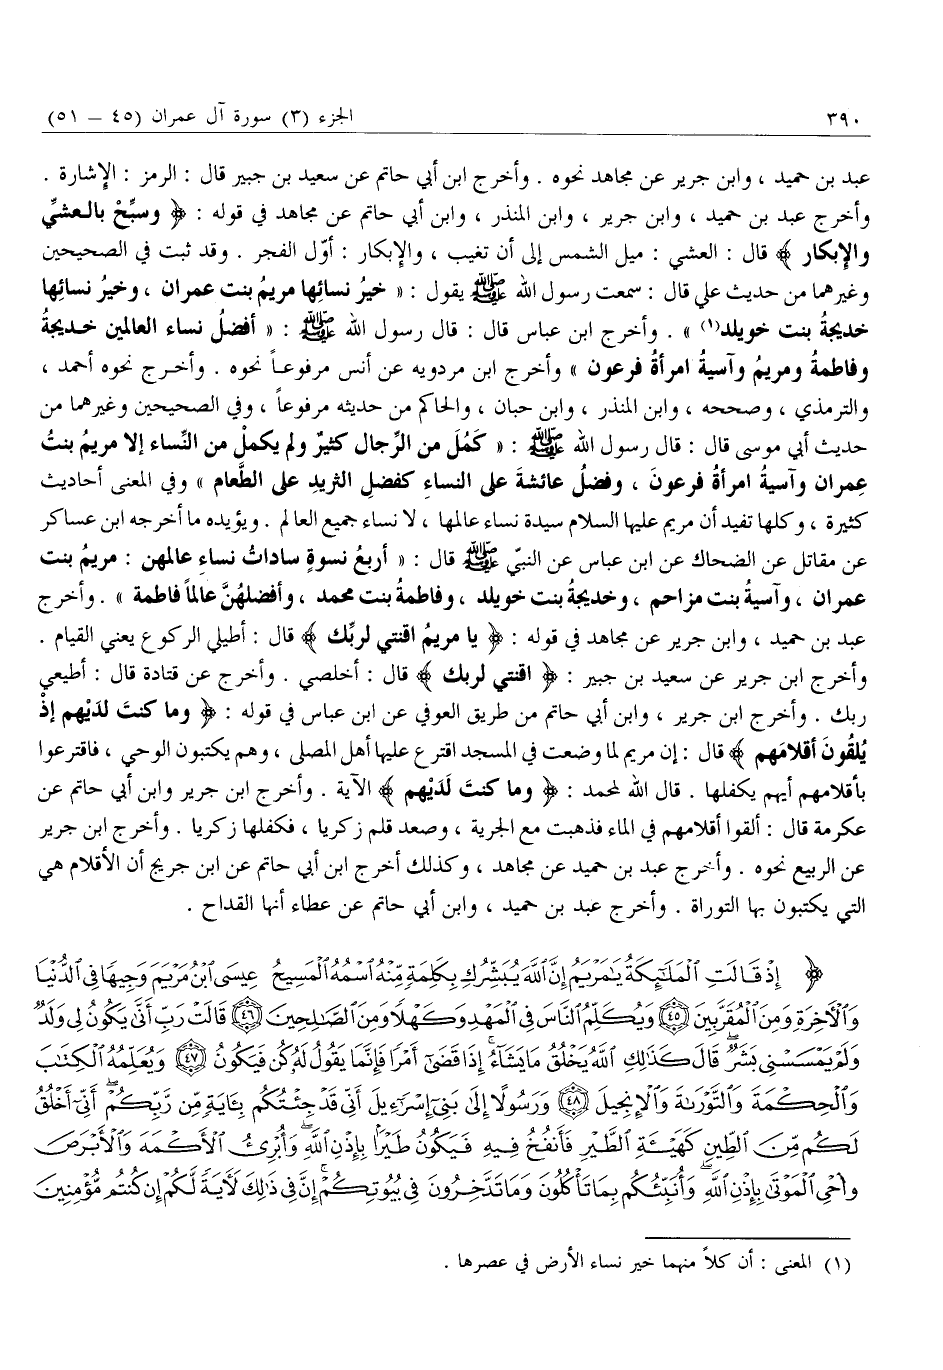 ٣٩٠ الجزء (٣) سورة آل عمران (٤٥ – ٥١)
عبد بن حميد ، وابن جرير عن مجاهد نحوه . وأخرج ابن أبي حاتم عن سعيد بن جبير قال : الرمز : الإشارة .
وأخرج عبد بن حميد ، وابن جرير ، وابن المنذر ، وابن أبي حاتم عن مجاهد في قوله : ﴿ وسبِّحْ بالعشيِّ
والإبكار ﴾ قال : العشي : ميل الشمس إلى أن تغيب ، والإبكار : أوّل الفجر . وقد ثبت في الصحيحين
وغيرهما من حديث علي قال : سمعت رسول الله ﷺ يقول : « خيرُ نسائها مريمُ بنت عمران ، وخيرُ نسائِها
خديجةُ بنت خويلد(١) » . وأخرج ابن عباس قال : قال رسول الله ﷺ : « أفضلُ نساء العالمين خديجةُ
وفاطمةُ ومريمُ وآسيةُ امرأةُ فرعون » وأخرج ابن مردويه عن أنس مرفوعاً نحوه . وأخرج نحوه أحمد ،
والترمذي ، وصححه ، وابن المنذر ، وابن حبان ، والحاكم من حديثه مرفوعاً ، وفي الصحيحين وغيرهما من
حديث أبي موسى قال : قال رسول الله ﷺ : « كَمُلَ من الرِّجال كثيرٌ ولم يكملْ من النِّساء إلا مريمُ بنتُ
عِمران وآسيةُ امرأةُ فرعونَ ، وفضلُ عائشةَ على النساءِ كفضلِ الثريدِ على الطَّعام » وفي المعنى أحاديث
كثيرة ، وكلها تفيد أن مريم عليها السلام سيدة نساء عالمها ، لا نساء جميع العالم . ويؤيده ما أخرجه ابن عساكر
عن مقاتل عن الضحاك عن ابن عباس عن النبيّ ﷺ قال : « أربعُ نسوةٍ ساداتُ نساءِ عالمهن : مريمُ بنت
عمران ، وآسيةُ بنت مزاحم ، وخديجةُ بنت خويلد ، وفاطمةُ بنت محمد ، وأفضلهُنَّ عالماً فاطمة » . وأخرج
عبد بن حميد ، وابن جرير عن مجاهد في قوله : ﴿ يا مريمُ اقنتي لربِّك ﴾ قال : أطيلي الركوع يعني القيام .
وأخرج ابن جرير عن سعيد بن جبير : ﴿ اقنتي لربك ﴾ قال : أخلصي . وأخرج عن قتادة قال : أطيعي
ربك . وأخرج ابن جرير ، وابن أبي حاتم من طريق العوفي عن ابن عباس في قوله : ﴿ وما كنتَ لدَيْهم إذْ
يُلقُونَ أقلامَهم ﴾ قال : إن مريم لما وضعت في المسجد اقترع عليها أهل المصلى ، وهم يكتبون الوحي ، فاقترعوا
بأقلامهم أيهم يكفلها . قال الله لمحمد : ﴿ وما كنتَ لَدَيْهم ﴾ الآية . وأخرج ابن جرير وابن أبي حاتم عن
عكرمة قال : ألقوا أقلامهم في الماء فذهبت مع الجرية ، وصعد قلم زكريا ، فكفلها زكريا . وأخرج ابن جرير
عن الربيع نحوه . وأخرج عبد بن حميد عن مجاهد ، وكذلك أخرج ابن أبي حاتم عن ابن جريج أن الأقلام هي
التي يكتبون بها التوراة . وأخرج عبد بن حميد ، وابن أبي حاتم عن عطاء أنها القداح .
﴿ إِذْ قَالَتِ الْمَلَٰٓئِكَةُ يَٰمَرْيَمُ إِنَّ اللَّهَ يُبَشِّرُكِ بِكَلِمَةٍ مِّنْهُ اسْمُهُ الْمَسِيحُ عِيسَى ابْنُ مَرْيَمَ وَجِيهًا فِي الدُّنْيَا
وَالْءَاخِرَةِ وَمِنَ الْمُقَرَّبِينَ ٤٥ وَيُكَلِّمُ النَّاسَ فِي الْمَهْدِ وَكَهْلًا وَمِنَ الصَّٰلِحِينَ ٤٦ قَالَتْ رَبِّ أَنَّىٰ يَكُونُ لِي وَلَدٌ
وَلَمْ يَمْسَسْنِي بَشَرٌ ۖ قَالَ كَذَٰلِكِ اللَّهُ يَخْلُقُ مَا يَشَآءُ ۚ إِذَا قَضَىٰٓ أَمْرًا فَإِنَّمَا يَقُولُ لَهُۥ كُن فَيَكُونُ ٤٧ وَيُعَلِّمُهُ الْكِتَٰبَ
وَالْحِكْمَةَ وَالتَّوْرَىٰةَ وَالْإِنجِيلَ ٤٨ وَرَسُولًا إِلَىٰ بَنِيٓ إِسْرَٰٓءِيلَ أَنِّي قَدْ جِئْتُكُم بِـَٔايَةٍ مِّن رَّبِّكُمْ ۖ أَنِّيٓ أَخْلُقُ
لَكُم مِّنَ الطِّينِ كَهَيْـَٔةِ الطَّيْرِ فَأَنفُخُ فِيهِ فَيَكُونُ طَيْرًۢا بِإِذْنِ اللَّهِ ۖ وَأُبْرِئُ الْأَكْمَهَ وَالْأَبْرَصَ
وَأُحْيِ الْمَوْتَىٰ بِإِذْنِ اللَّهِ ۖ وَأُنَبِّئُكُم بِمَا تَأْكُلُونَ وَمَا تَدَّخِرُونَ فِي بُيُوتِكُمْ ۚ إِنَّ فِي ذَٰلِكَ لَءَايَةً لَّكُمْ إِن كُنتُم مُّؤْمِنِينَ
(١) المعنى : أن كلاً منهما خير نساء الأرض في عصرها .